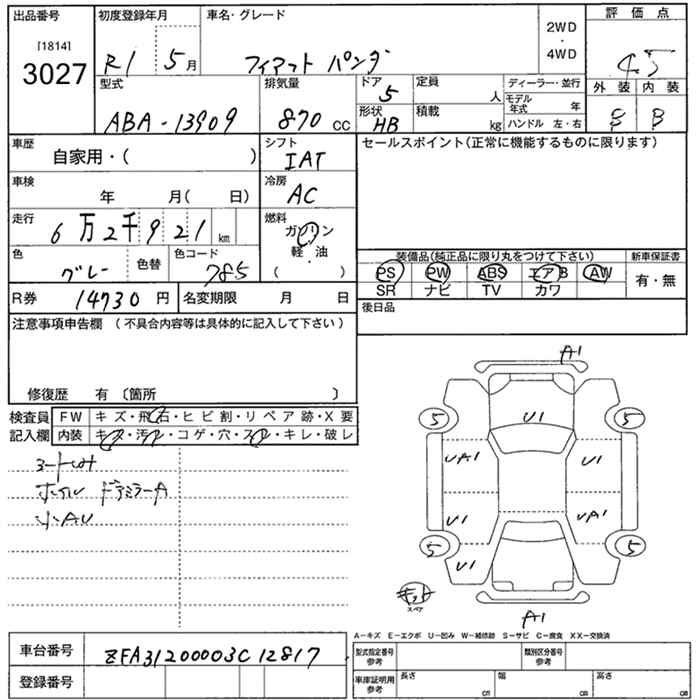 出品番号 初度登録年月 車名・グレード 2WD・4WD 評価点
[1814]
3027 R1 5月 フィアット パンダ 4.5
型式 排気量 ドア 5 定員 人 ディーラー・並行 外装 内装
ABA-13909 870 CC 形状 HB 積載 kg モデル年式 年 ハンドル 左・右 S B
車歴 自家用・( ) シフト IAT セールスポイント(正常に機能するものに限ります)
車検 年 月( 日) 冷房 AC
走行 6万2千921km 燃料 ガソリン・軽油・( )
色 グレー 色替 色コード 785
装備品(純正品に限り丸をつけて下さい) 新車保証書
PS PW ABS エアB AW 有・無
SR ナビ TV カワ
R券 14730円 名変期限 月 日 後日品
注意事項申告欄 (不具合内容等は具体的に記入して下さい)
修復歴 有 〔箇所 〕
検査員記入欄 FW キズ・飛石・ヒビ割・リペア跡・X要
内装 キズ・汚レ・コゲ・穴・スレ・キレ・破レ
シートしみ
ホイル ドアミラーA
小AU
A1
U1
5 5
UA1 U1
U1 UA1
5 5
U1
キット
スペア
A1
A−キズ E−エクボ U−凹み W−補修跡 S−サビ C−腐食 XX−交換済
車台番号 ZFA31200003C12817
登録番号
型式指定番号 参考 類別区分番号 参考
車庫証明用 参考 長さ cm 幅 cm 高さ cm